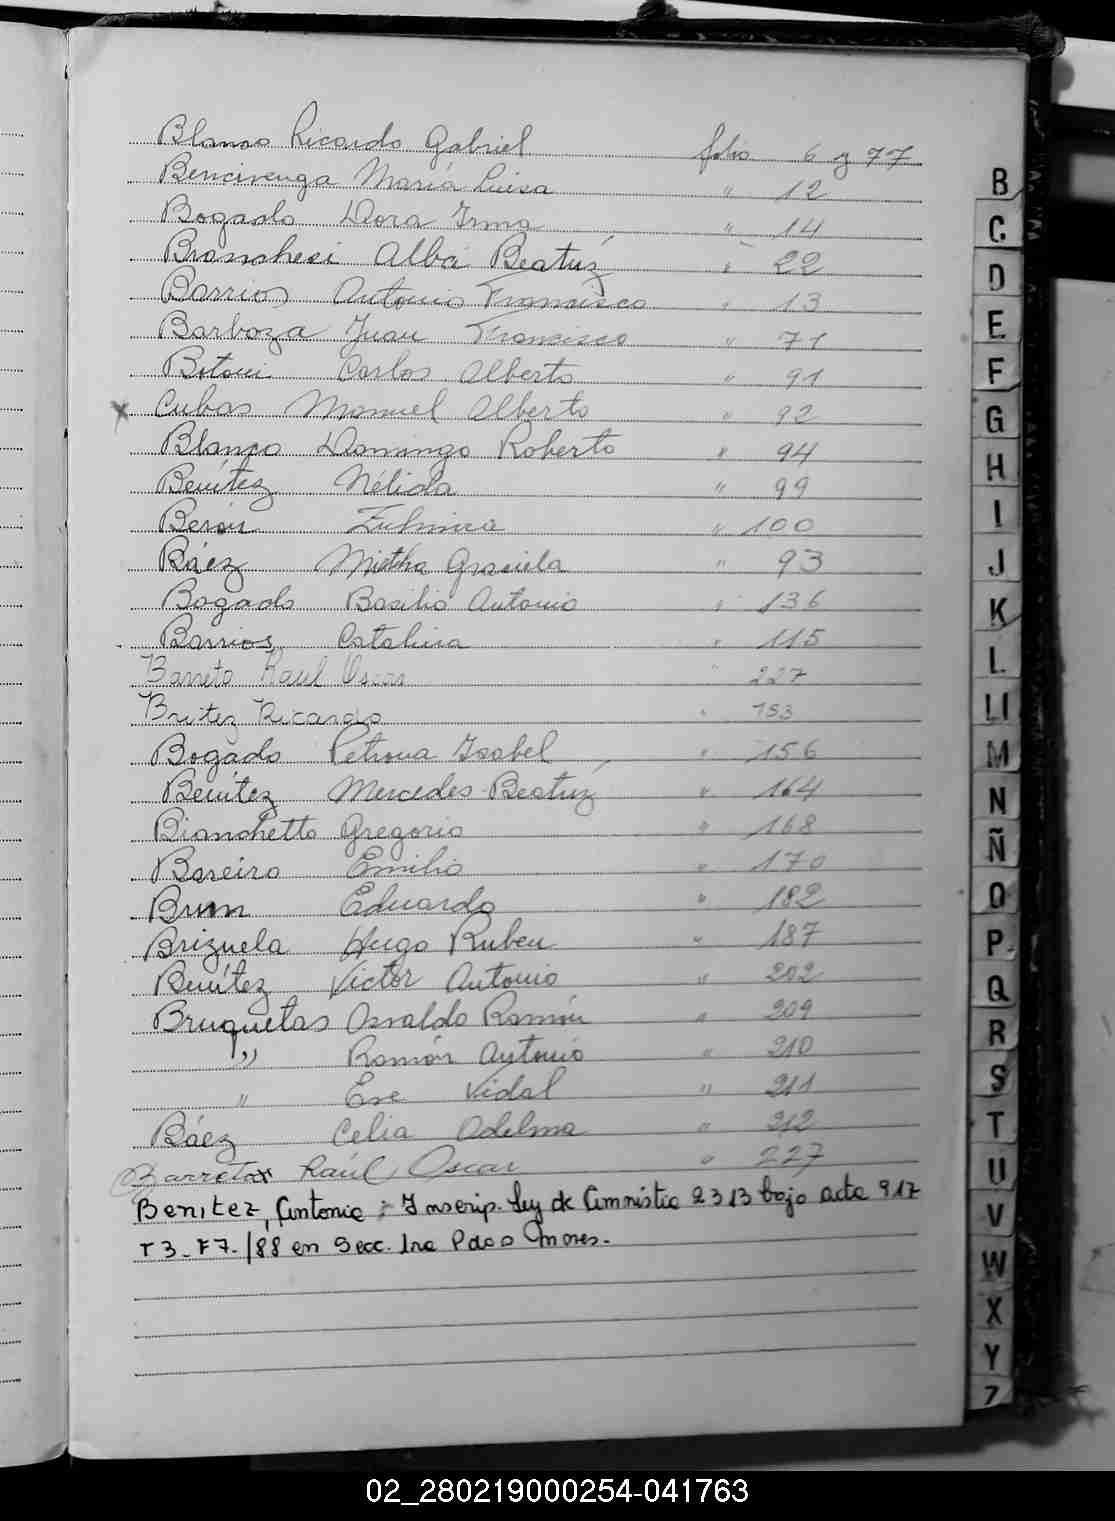 Blanco Ricardo Gabriel folio 6 y 77
Bencivenga María Luisa " 12
Bogado Dora Irma " 14
Branchesi Alba Beatríz " 22
Barrios Antonio Francisco " 13
Barboza Juan Francisco " 71
Carlos Alberto " 91
x Cubas Manuel Alberto " 92
Blanco Domingo Roberto " 94
Benítez Nélida " 99
" 100
Báez Mirtha Graciela " 93
Bogado Basilio Antonio " 136
Barrios Catalina " 115
Barreto Raul Oscar " 227
Britez Ricardo " 153
Bogado Petrona Isabel " 156
Benítez Mercedes Beatríz " 164
Bianchetto Gregorio " 168
Bareiro Emilio " 170
Brun Eduardo " 182
Brizuela Hugo Ruben " 187
Benítez Victor Antonio " 202
Bruquetas Osvaldo Ramón " 209
" Ramón Antonio " 210
" Vidal " 211
Báez Celia Adelma " 212
Barreto Raúl Oscar " 227
Benitez, Antonia : Inscrip. Ley de Amnistia 2313 bajo acta 917
T 3_ F7_/88 en Secc. 1ra Pdas
B
C
D
E
F
G
H
I
J
K
L
Ll
M
N
Ñ
O
P
Q
R
S
T
U
V
W
X
Y
Z
02_280219000254-041763